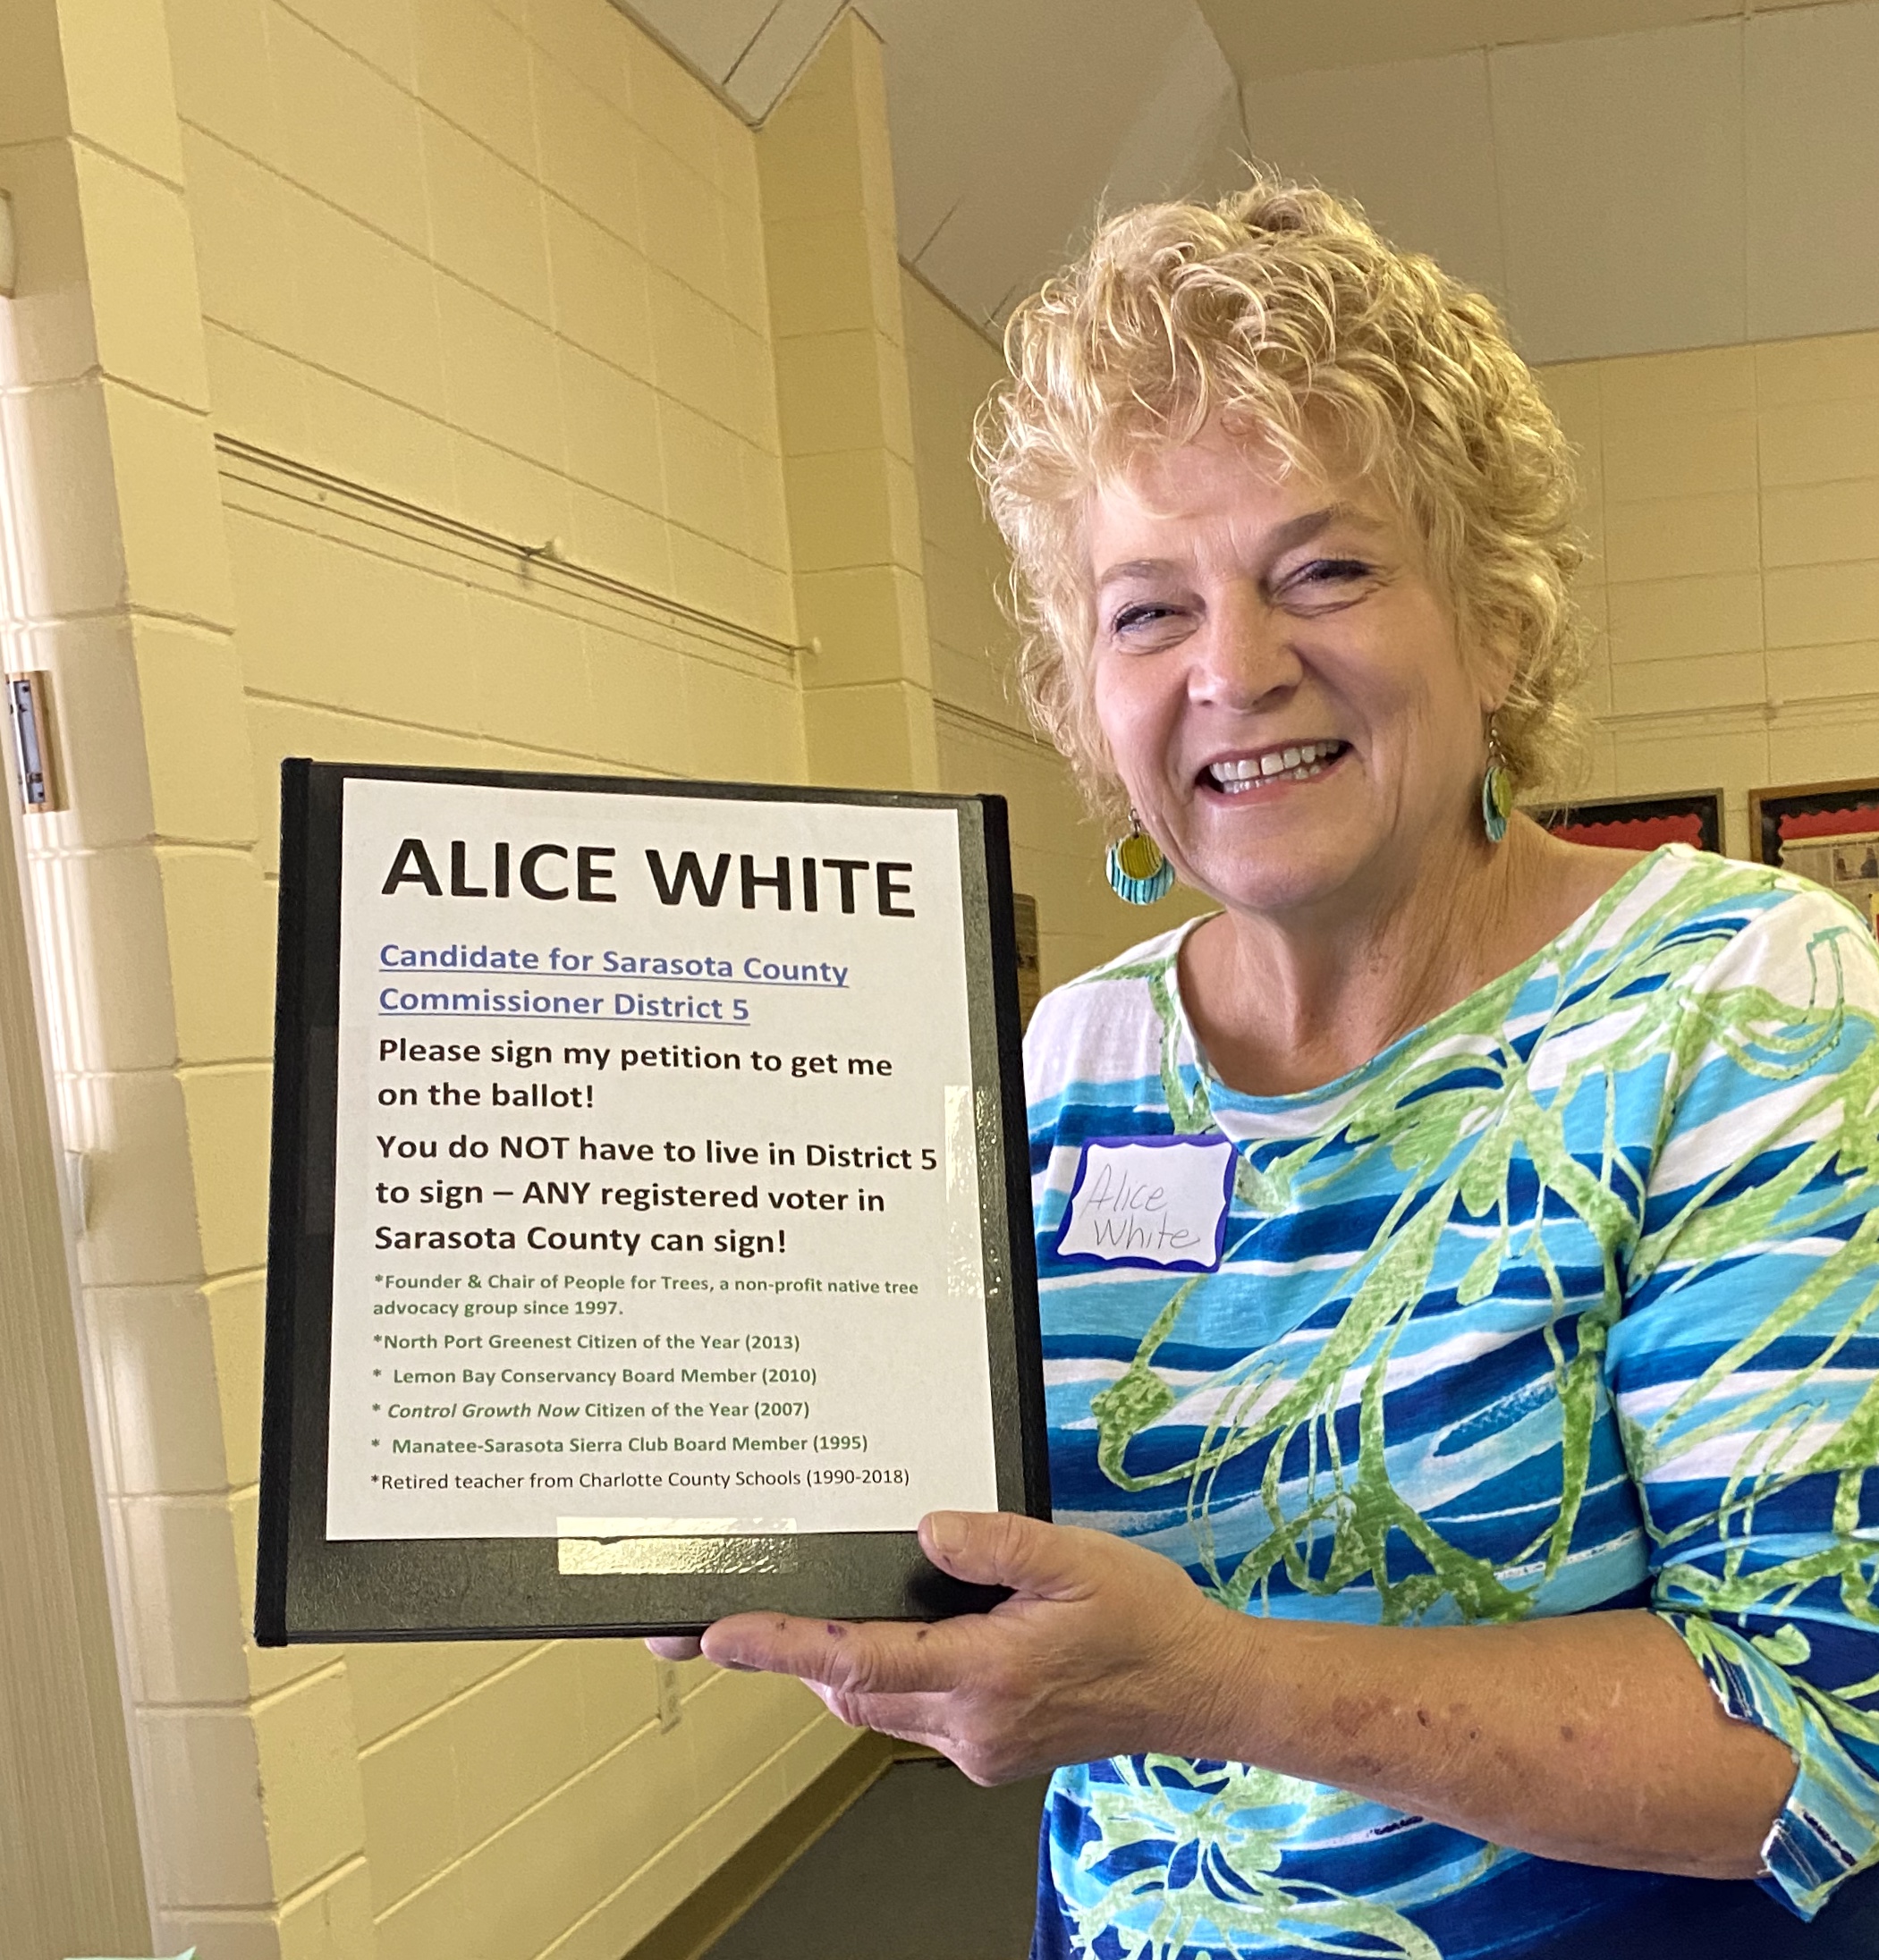 ALICE WHITE
Candidate for Sarasota County
Commissioner District 5
Please sign my petition to get me
on the ballot!
You do NOT have to live in District 5
to sign – ANY registered voter in
Sarasota County can sign!
*Founder & Chair of People for Trees, a non-profit native tree
advocacy group since 1997.
*North Port Greenest Citizen of the Year (2013)
* Lemon Bay Conservancy Board Member (2010)
* Control Growth Now Citizen of the Year (2007)
* Manatee-Sarasota Sierra Club Board Member (1995)
*Retired teacher from Charlotte County Schools (1990-2018)
Alice
White